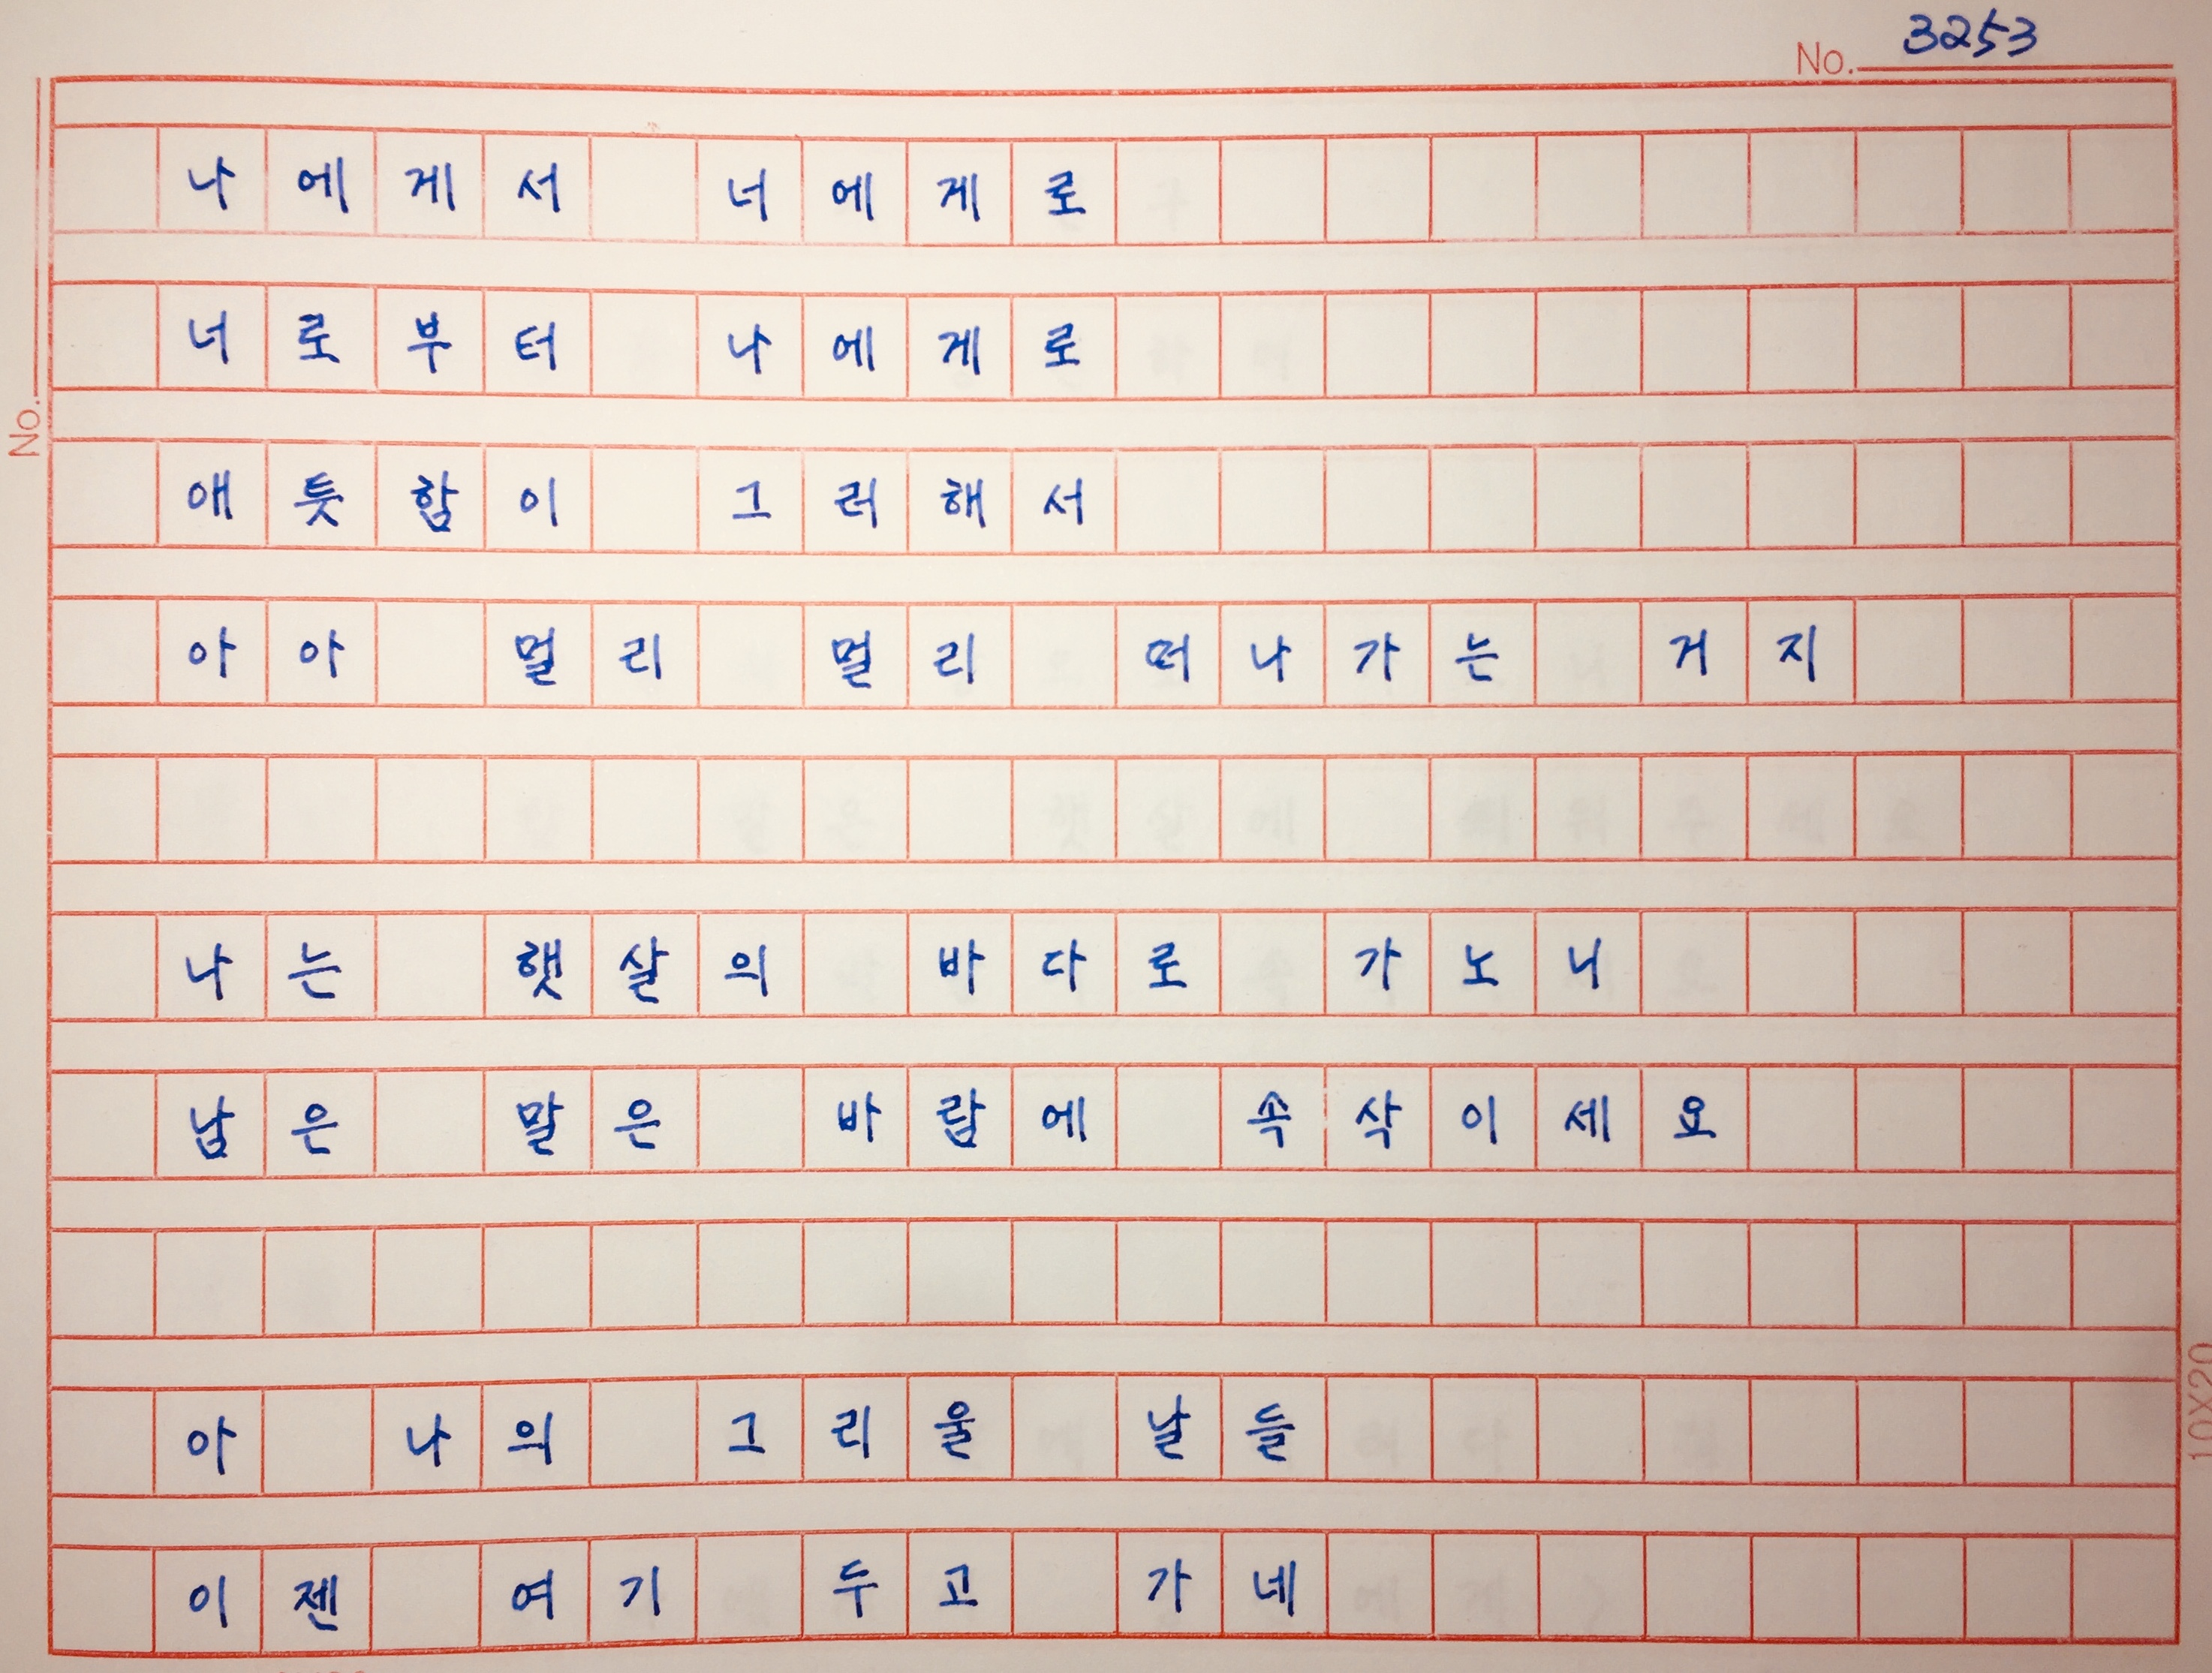 No. 3253
나에게서 너에게로
너로부터 나에게로
애틋함이 그러해서
아아 멀리 멀리 떠나가는 거지
나는 햇살의 바다로 가노니
남은 말은 바람에 속삭이세요
아 나의 그리울 날들
이젠 여기 두고 가네
No.
10X20